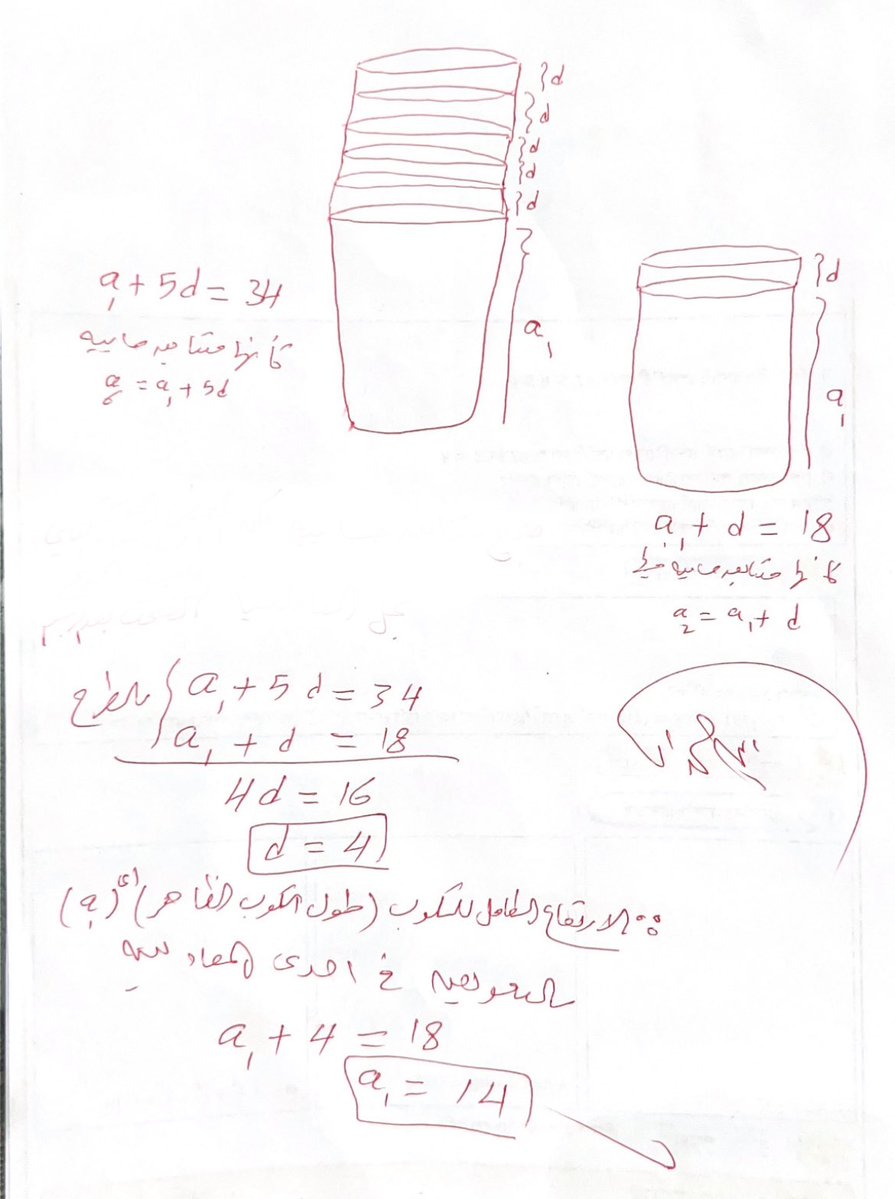 }d
}d
}d
}d
}d
a₁
a₁ + 5d = 34
كأنها متتابعه حسابيه
a₆ = a₁ + 5d
}d
a₁
a₁ + d = 18
كأنها متتابعه حسابيه
a₂ = a₁ + d
بالطرح { a₁ + 5d = 34
a₁ + d = 18
4d = 16
d = 4
∴ الارتفاع الكامل للكوب (طول الكوب الظاهر) أى (a₁)
بالتعويض في احدى المعادلتين
a₁ + 4 = 18
a₁ = 14